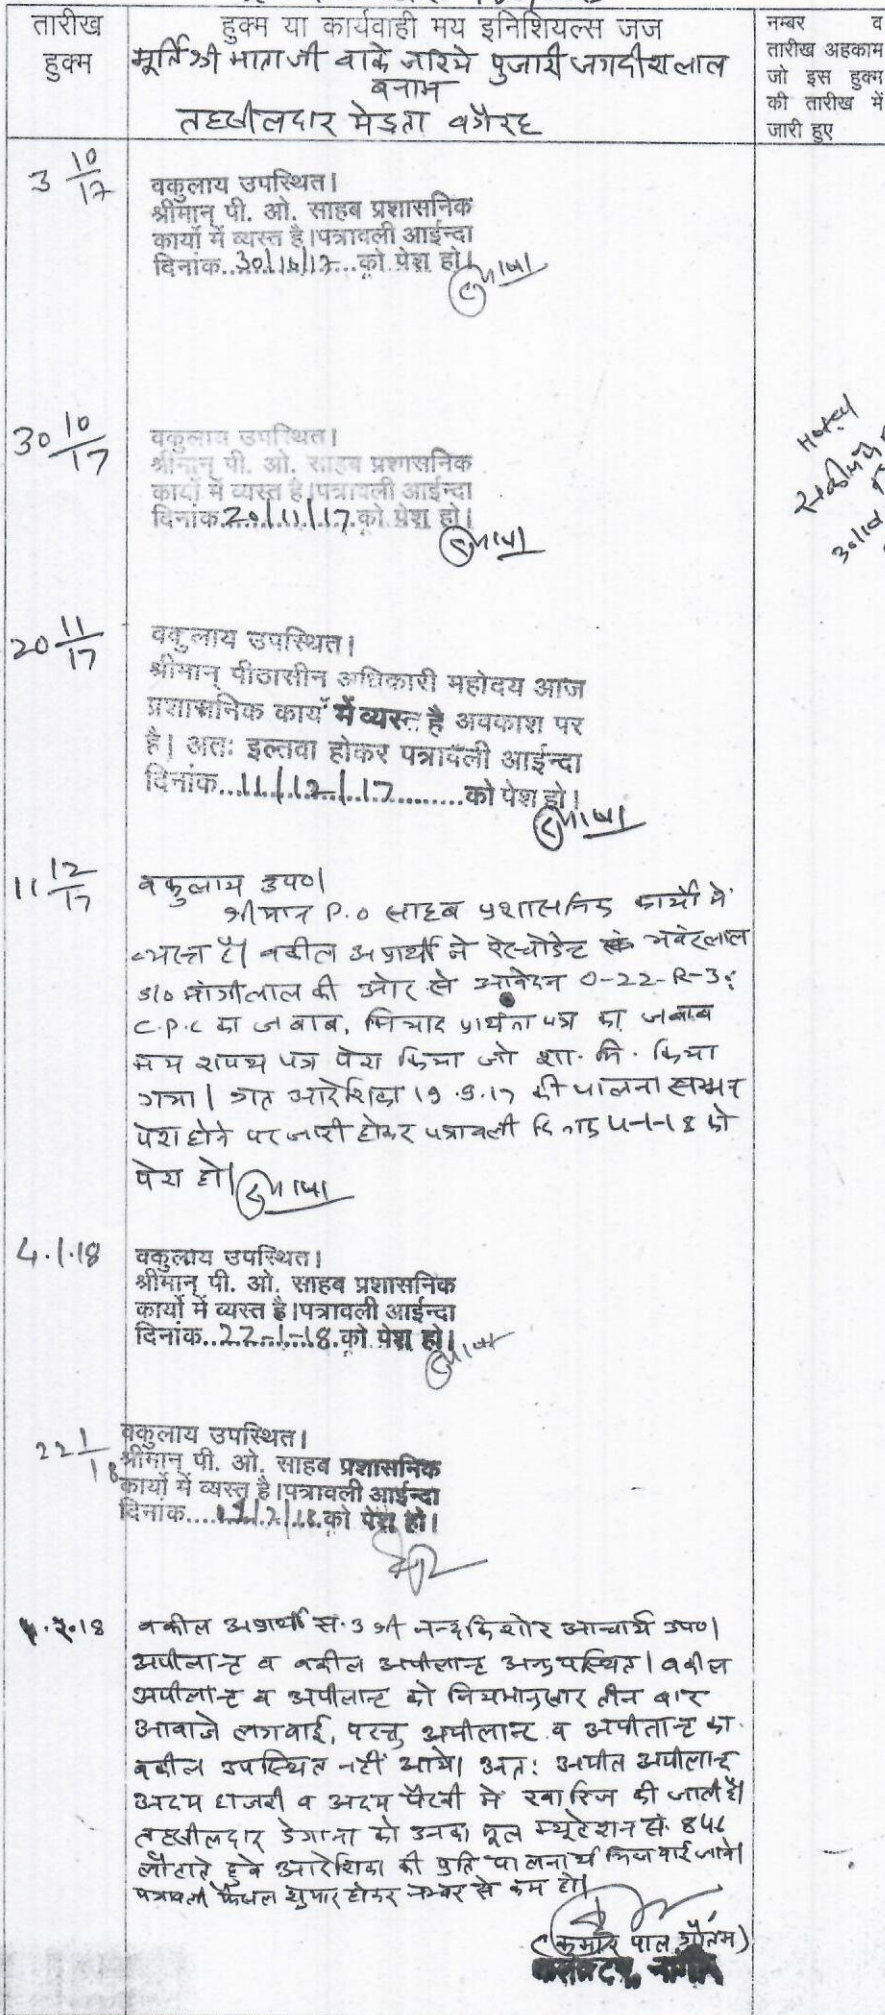 तारीख
हुक्म
हुक्म या कार्यवाही मय इनिशियल्स जज
मूर्ति श्री माताजी वाके जरिये पुजारी जगदीशलाल
बनाम
तहसीलदार मेडता वगैरह
नम्बर व
तारीख अहकाम
जो इस हुक्म
की तारीख में
जारी हुए
3 10/17
वकुलाय उपस्थित।
श्रीमान् पी. ओ. साहब प्रशासनिक
कार्यो में व्यस्त है।पत्रावली आईन्दा
दिनांक..30/10/17...को पेश हो।
30 10/17
वकुलाय उपस्थित।
श्रीमान् पी. ओ. साहब प्रशासनिक
कार्यो में व्यस्त है।पत्रावली आईन्दा
दिनांक.20/11/17.को पेश हो।
20 11/17
वकुलाय उपस्थित।
श्रीमान् पीठासीन अधिकारी महोदय आज
प्रशासनिक कार्य में व्यस्त है अवकाश पर
है। अतः इल्तवा होकर पत्रावली आईन्दा
दिनांक...11/12/17........को पेश हो।
11 12/17
वकुलाय उप०।
श्रीमान P.O साहब प्रशासनिक कार्यो में
व्यस्त है। वकील अप्रार्थी ने रेस्पोडेन्ट भवंरलाल
s/o मांगीलाल की ओर से आवेदन O-22-R-3
C.P.C का जवाब, मियाद प्रार्थना पत्र का जवाब
मय शपथ पत्र पेश किया जो शा. मि. किया
गया। गत आदेशिका 19.9.17 की पालना सम्मन
पेश होने पर जारी होकर पत्रावली दिनांक 4-1-18 को
पेश हो।
4.1.18
वकुलाय उपस्थित।
श्रीमान् पी. ओ. साहब प्रशासनिक
कार्यो में व्यस्त है।पत्रावली आईन्दा
दिनांक..22-1-18.को पेश हो।
22 1/18
वकुलाय उपस्थित।
श्रीमान् पी. ओ. साहब प्रशासनिक
कार्यो में व्यस्त है।पत्रावली आईन्दा
दिनांक.... को पेश हो।
वकील अप्रार्थी सं. 3 श्री नन्दकिशोर आचार्य उप०।
अपीलान्ट व वकील अपीलान्ट अनुपस्थित। वकील
अपीलान्ट व अपीलान्ट को नियमानुसार तीन बार
आवाजे लगवाई, परन्तु अपीलान्ट व अपीलान्ट का
वकील उपस्थित नहीं आये। अतः अपील अपीलान्ट
अदम हाजरी व अदम पैरवी में खारिज की जाती है।
तहसीलदार डेगाना को उनका मूल म्यूटेशन सं. 846
लौटाते हुवे आदेशिका की प्रति पालनार्थ भिजवाई जावे।
पत्रावली फैसल शुमार होकर नम्बर से कम हो।
(कुमार पाल गौतम)
कलक्टर, नागौर